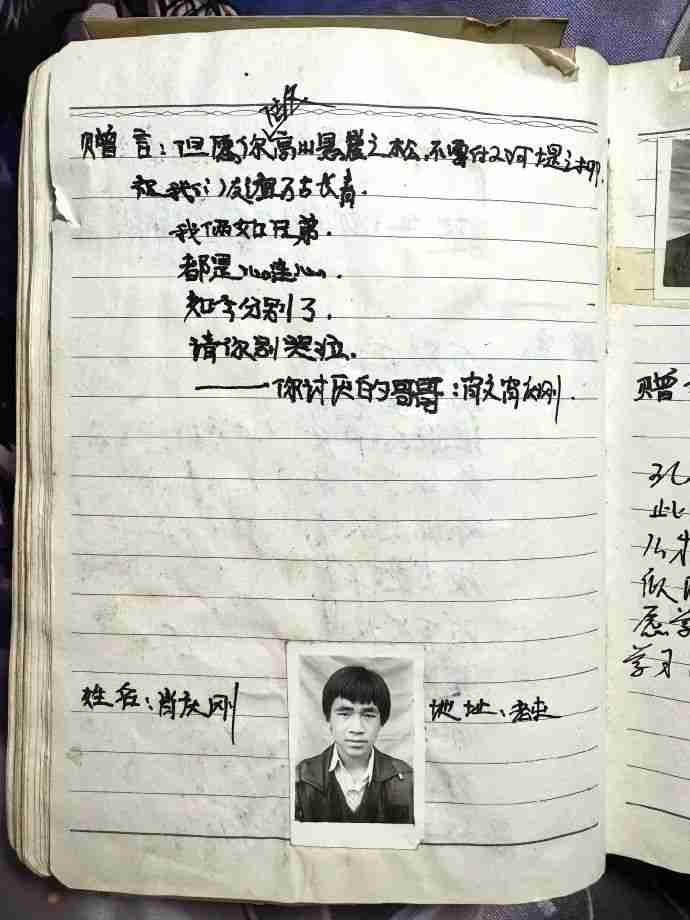 赠言:但愿你做高山悬崖之松,不要作河堤之柳.
祝我们友谊万古长青.
我俩如兄弟.
都是心连心.
如今分别了.
请你别哭泣.
——你讨厌的哥哥:肖庆刚.
姓名:肖庆刚
地址:老屯
赠
孔
此
么
似
愿学
学习